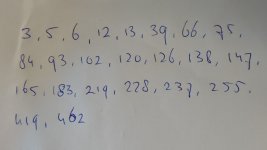 3, 5, 6, 12, 13, 39, 66, 75,
84, 93, 102, 120, 126, 138, 147,
165, 183, 219, 228, 237, 255,
419, 462